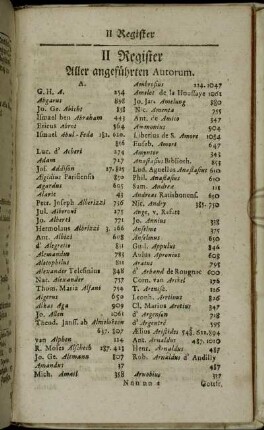 II Register
II Register
Aller angeführten Autorum.
A.
G. H. A. 254
Abgarus 898
Jo. Ge. Abicht 858
Ismael ben Abraham 443
Erirus Abrot 364
Ismael Abul-Feda 181. 610
Luc. d' Achert 274
Adam 727
Jos. Addison 27. 825
Aegidius Parisiensis 850
Agardus 695
Alardi 43
Petr. Joseph Alberizzi 796
Jul. Alberoni 273
Jo. Alberti 771
Hermolaus Albrizzi 3. 166
Ant. Albizi 608
d' Alegretti 811
Alemandus 785
Aletophilus 811
Alexander Telesinus 848
Nat. Alexander 757
Thom. Maria Alfani 750
Algerus 650
Albas Aga 908
Jo. Allen 1061
Theod. Janss. ab Almeloveen
637. 807
van Alphen 114
R. Moses Alscheech 187. 423
Jo. Ge. Altmann 807
Amandus 37
Mich. Amati 318
Ambrosius 224. 1047
Amelot de la Houssaye 1062
Jo. Jac. Ameling 880
Nic. Amenta 355
Ant. de Amico
Ammonius 904
Libertus de S. Amore 1054
Euseb. Amort 647
Ampertor 545
Anastasius Biblioth. 853
Lud. Aguellus Anastasius 601
Phil. Anastasius
Sam. Andreæ 111
Andreas Ratisbonens.
Nic. Andry 381. 750
Ange, v. Rafait
Jo. Annius
Anselme 377
Anselmus 650
Gesl. Appulus 846
Aulus Apronius 808
Aratus 798
d' Arband de Rougnac 600
Corn. van Arckel 176
Tr. Arenise 116
Leonh. Aretinus 826
Cl. Marius Aretius 31
d' Argensin 718
d' Argentré 595
Ælius Aristides 548. 612. 894
Ant. Arnaldus 487. 1010
Henr. Arnaldus 487
Rob. Arnaldus d' Andilly
487
Arnobius 317
N n n n 4 Gotts.